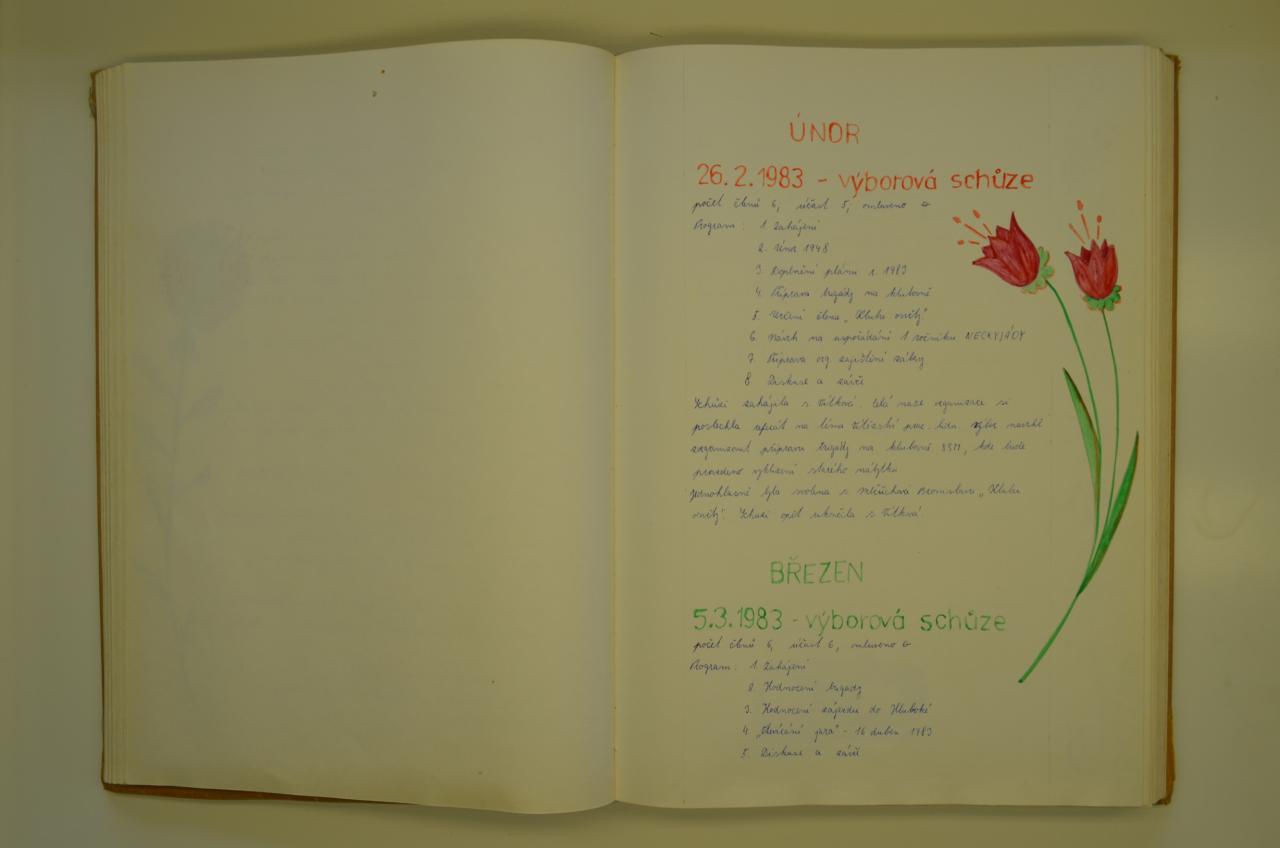 ÚNOR
26. 2. 1983 - výborová schůze
počet členů 6, účast 5, omluveno
Program: 1. Zahájení
2. Únor 1948
3. Doplnění plánu r. 1983
4. Příprava brigády na klubovně
5. Určení člena „Klubu
6. Návrh na uspořádání 1 ročníku NECKYJÁDY
7. Příprava org. zajištění zábavy
8. Diskuse a závěr
Schůzi zahájila s. Vítková. Celá naše organizace si
poslechla referát na téma Vítězství prac. lidu. Výbor navrhl
zorganizovat přípravu brigády na klubovně SSM, kde bude
provedeno vyklizení starého nábytku
Jednohlasně byla zvolena s. Bronislava „Klubu
Schůzi opět ukončila s. Vítková
BŘEZEN
5.3.1983 - výborová schůze
počet členů 6, účast 6, omluveno 0
Program: 1. Zahájení
2. Hodnocení brigády
3. Hodnocení zájezdu do Hluboké
4. „Otvírání jara" - 16 duben 1983
5. Diskuse a závěr